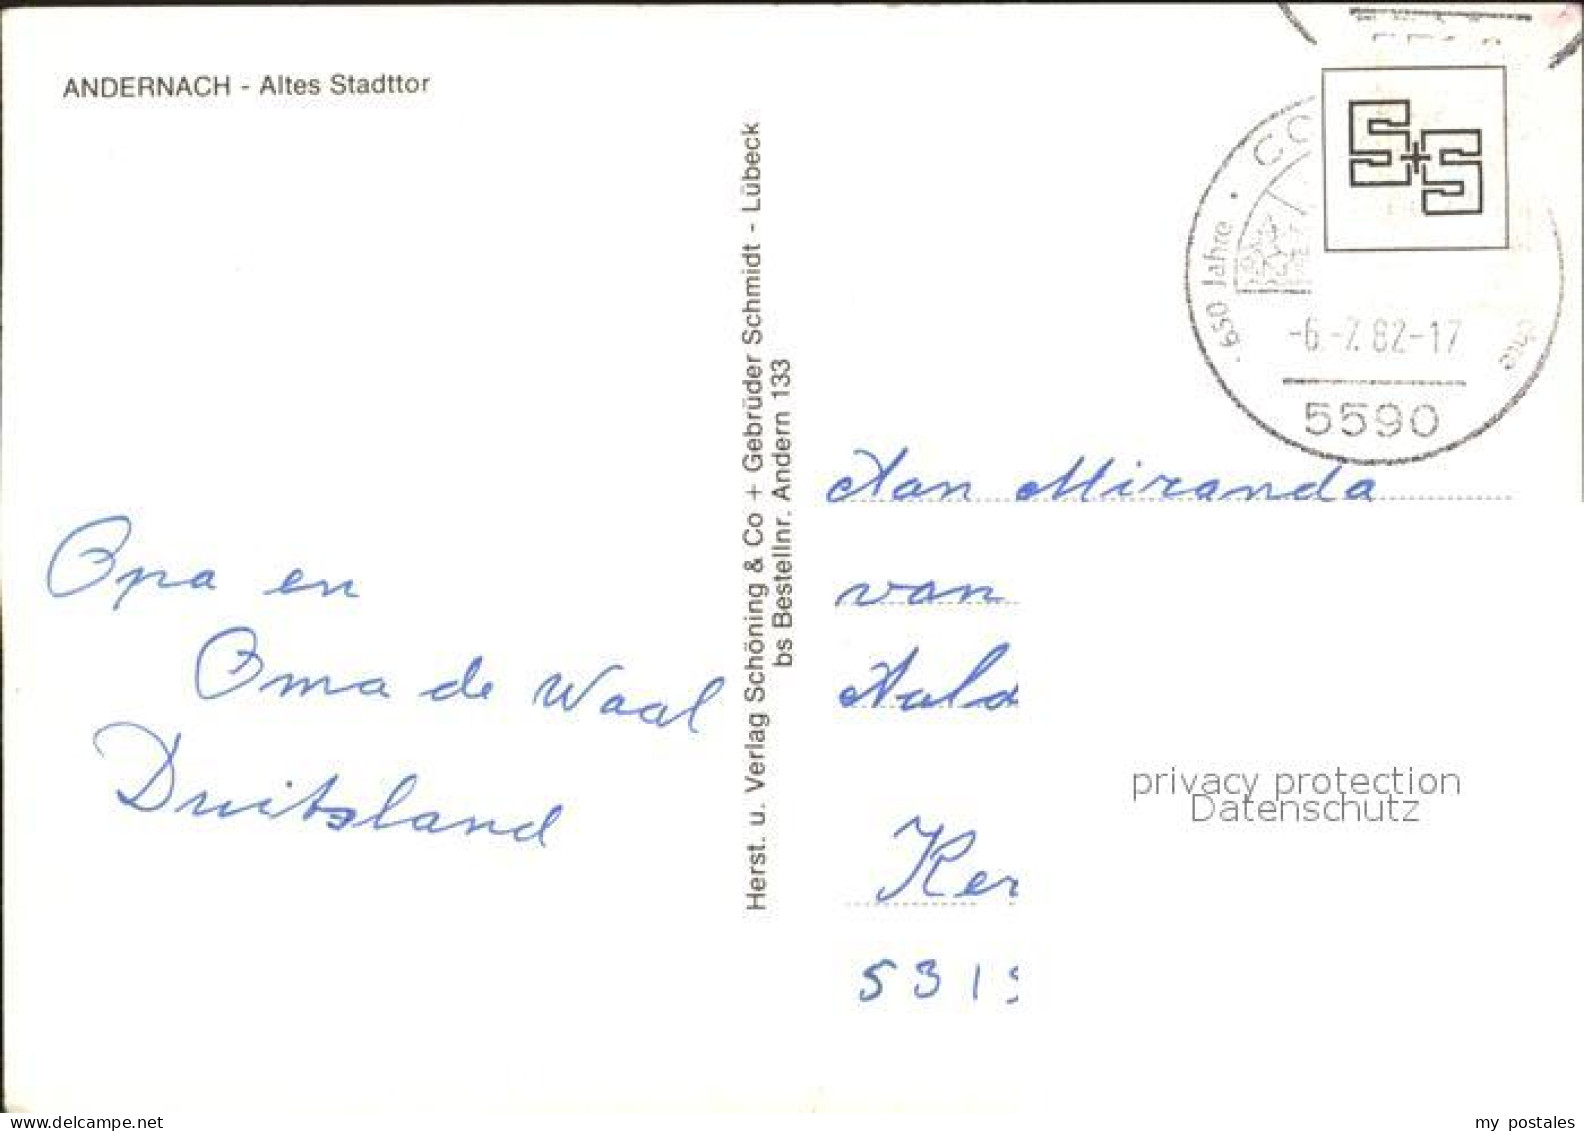 ANDERNACH - Altes Stadttor
Opa en
Oma de Waal
Duitsland
Herst. u. Verlag Schöning & Co + Gebrüder Schmidt - Lübeck
bs Bestellnr. Andern 133
S+S
CO
· 650 Jahre ·
-6.-7.82-17
5590
Aan Miranda
van
Aald
Ker
531
privacy protection
Datenschutz
delcampe.net
my_postales